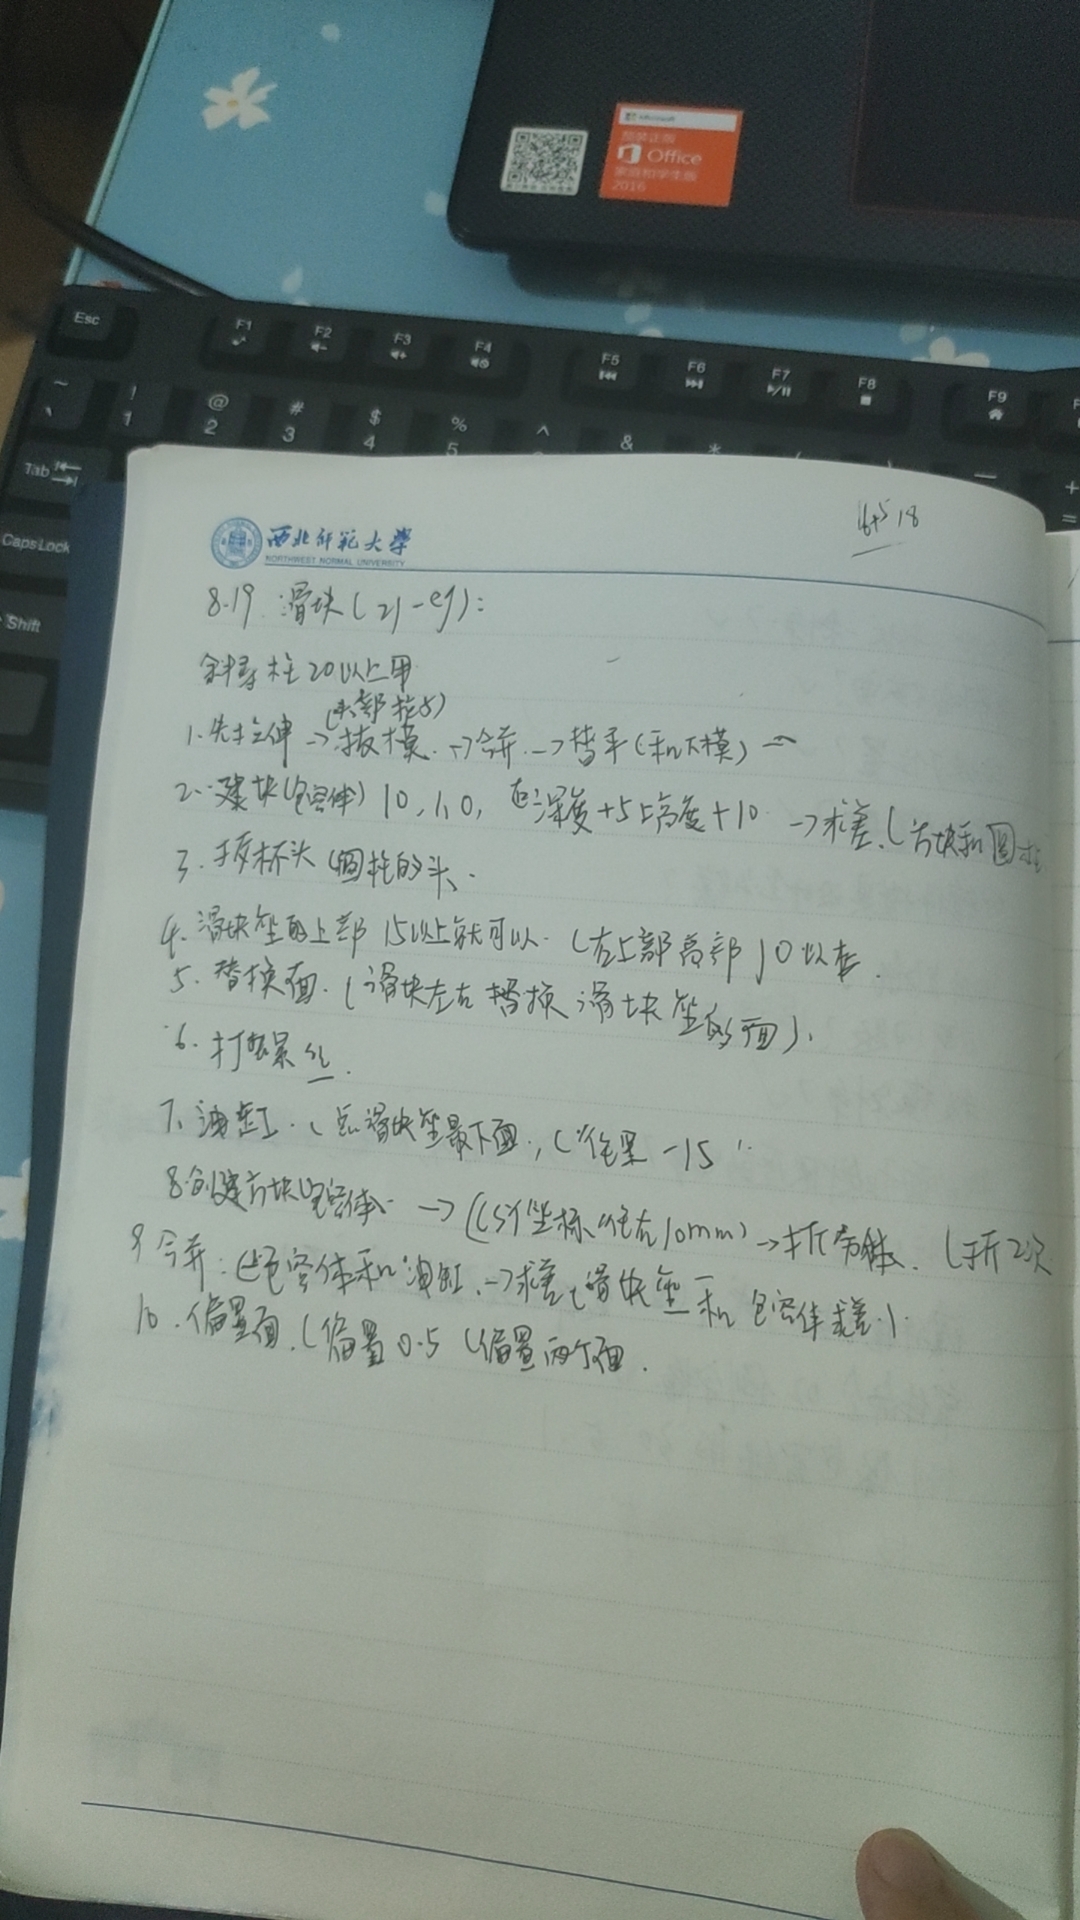 Microsoft
Office
家庭和学生版
2016
Esc
F1
F2
F3
F4
F5
F6
F7
F8
F9
~
!
1
@
2
#
3
$
4
%
5
^
&
*
Tab
CapsLock
Shift
西北师范大学
NORTHWEST NORMAL UNIVERSITY
18
8.19 滑块
斜导柱20以上用
(头部拉5)
1.先拉伸→拔模→合并→替平(和下模)
2.建块(包容体)10,1,0, 深度+5 高度+10→求差(方块和圆柱
3. 杯头(圆柱的头
4.滑块坐的上部15以上就可以(右上部高部10以
5.替换面(滑块左右替换滑块坐的面)
6.打螺丝
7.油缸(点滑块坐最下面,(往里-15
8.创建方块(包容体→(坐标往右10mm)→拆体(拆2次
9合并:包容体和油缸→求差(滑块坐和包容体求差)
10.偏置面(偏置0.5(偏置两个面